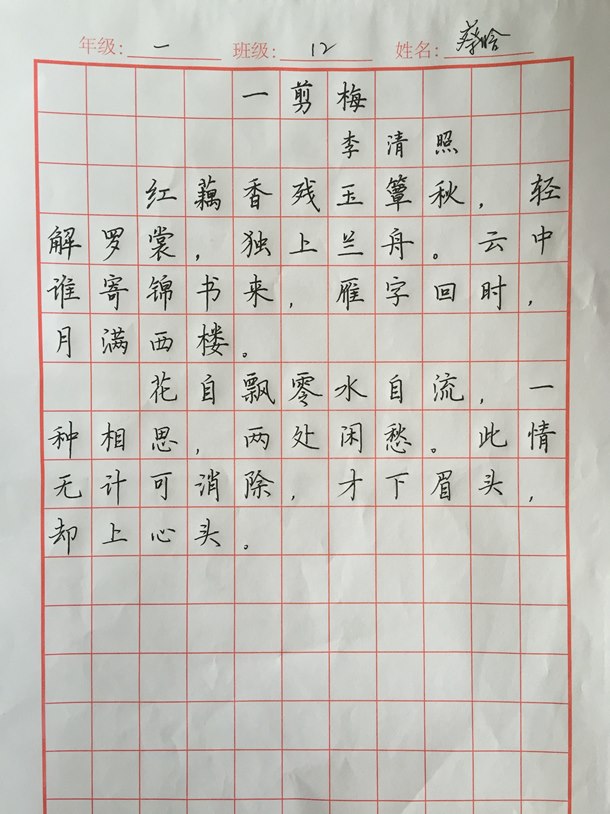 年级: 一 班级: 12 姓名: 蔡晗
一剪梅
李清照
红藕香残玉簟秋，轻
解罗裳，独上兰舟。云中
谁寄锦书来，雁字回时，
月满西楼。
花自飘零水自流，一
种相思，两处闲愁。此情
无计可消除，才下眉头，
却上心头。